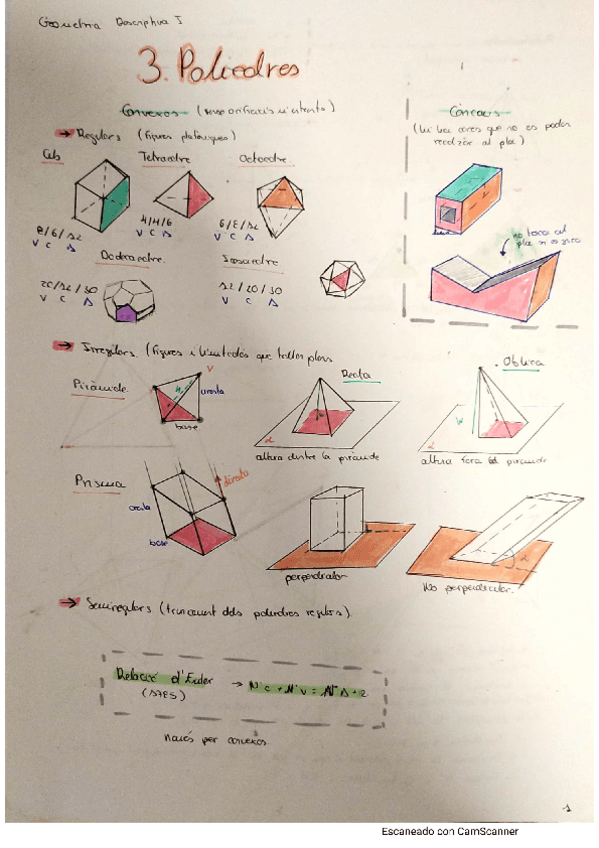 Geometria Descriptiva I
3. Poliedres
Convexos (sense orificis ni entrants)
Còncaus
(hi ha cares que no es poden recolzar al pla)
→ Regulars (figures platòniques)
Cub
Tetraedre
Octoedre.
8/6/12
V C A
4/4/6
V C A
6/8/12
V C A
no toca al
pla
Dodecaedre.
Icosaedre
20/12/30
V C A
12/20/30
V C A
→ Irregulars. (figures il·limitades que tallen plans
Piràmide.
V
h
aresta
base
Recta
α
altura dintre la piràmide
Obliqua
h
α
altura fora la piràmide
Prisma
aresta
base
directriu
perpendicular
α
No perpendicular.
→ Semiregulars (truncament dels poliedres regulars).
Relació d'Euler → Nº C + Nº V = Nº A + 2
(1785)
només per convexos.
1
Escaneado con CamScanner